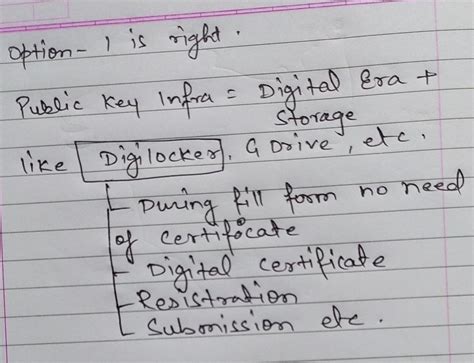 Option - 1 is right.
Public Key Infra = Digital Era +
Storage
like Digilocker, G Drive, etc.
- During fill form no need
of certificate
- Digital certificate
- Resistration
- Submission etc.